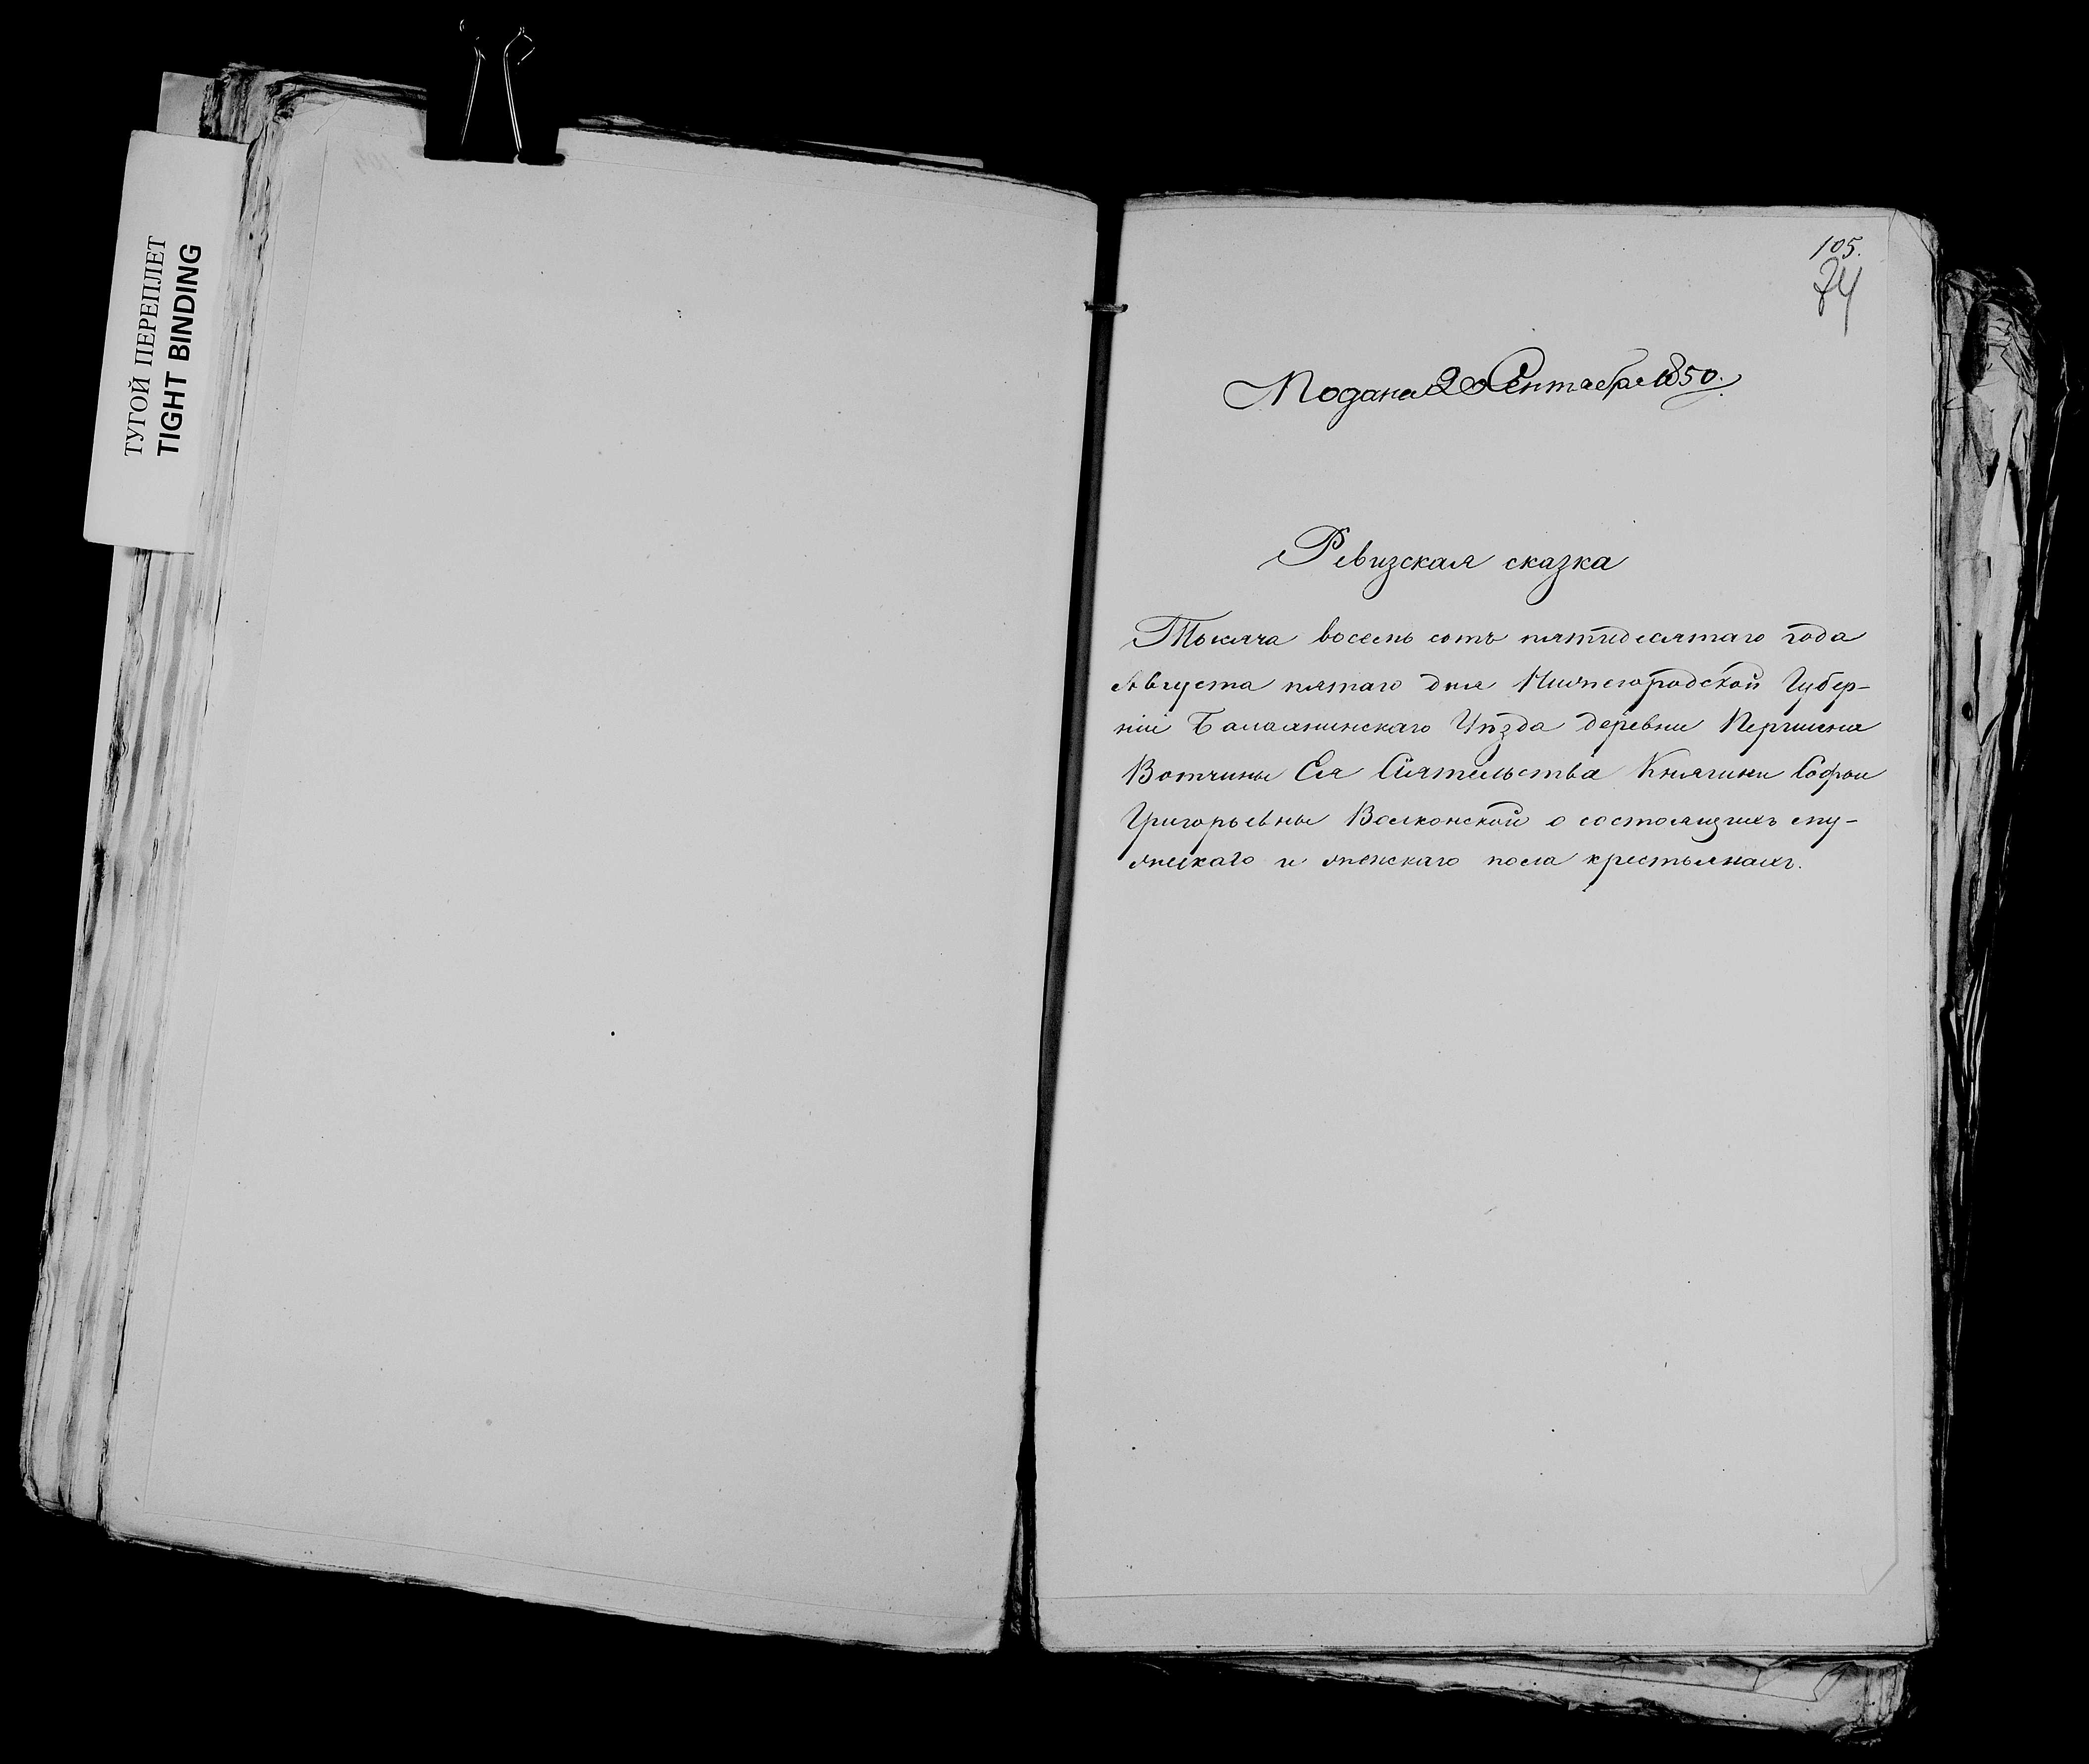 ТУГОЙ ПЕРЕПЛЕТ
TIGHT BINDING
105.
74
Подана 20 Сентября 1850.
Ревизская сказка
Тысяча восемь сотъ пятидесятаго года
Августа пятаго дня Нижегородской Губер-
ніи Балахнинскаго Уѣзда деревни Першина
Вотчины Ея Сіятельства Княгини Софьи
Григорьевны Волконской о состоящихъ му-
жескаго и женскаго пола крестьянахъ.